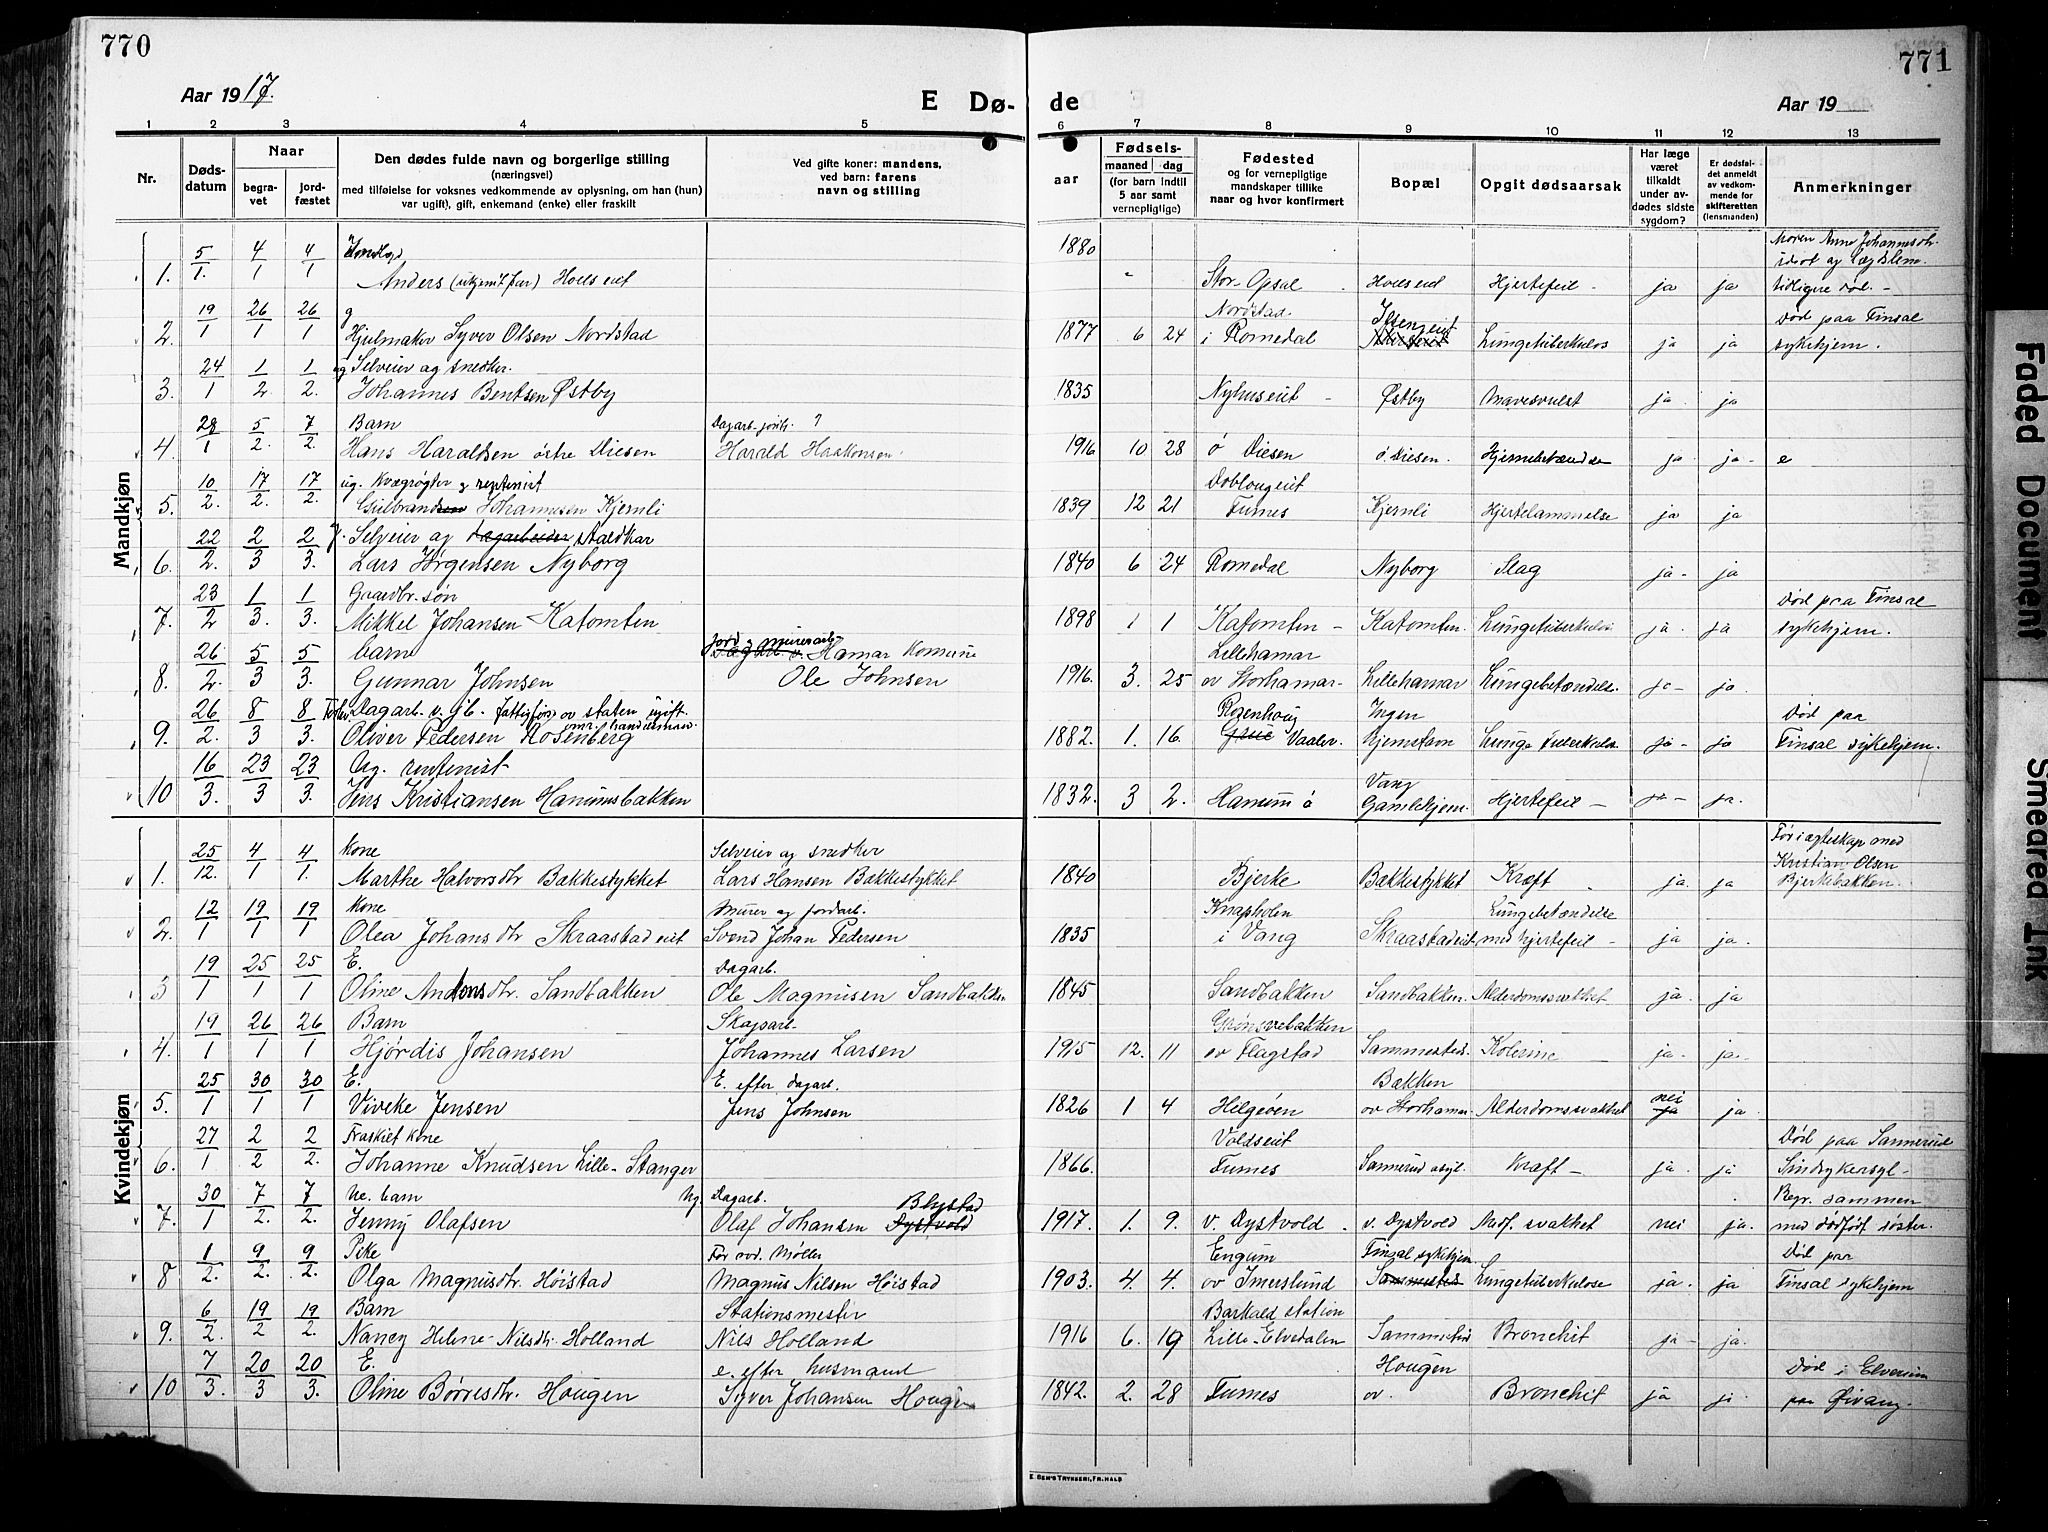 770
771
Aar 1917.
E Dø-
de
Aar 19
1 2 3 4 5 6 7 8 9 10 11 12 13
Nr.
Døds-
datum
Naar
begra-
vet
jord-
fæstet
Den dødes fulde navn og borgerlige stilling
(næringsvei)
med tilføielse for voksnes vedkommende av oplysning, om han (hun)
var ugift), gift, enkemand (enke) eller fraskilt
Ved gifte koner: mandens,
ved barn: farens
navn og stilling
aar
Fødsels-
maaned dag
(for barn indtil
5 aar samt
vernepligtige)
Fødested
og for vernepligtige
mandskaper tillike
naar og hvor konfirmert
Bopæl
Opgit dødsaarsak
Har læge
været
tilkaldt
under av-
dødes sidste
sygdom?
Er dødsfal-
det anmeldt
av vedkom-
mende for
skifteretten
(lensmanden)
Anmerkninger
Mandkjøn
5/1. 4/1 4/1 1880 Moren Anne Johannesdtr.
1. Anders Hollseiet Stor-Opsal Hollseiet Hjertefeil ja ja tidligere død.
19/1 26/1 26/1 g Nordstad Død paa Finsal
2. Hjulmaker Syver Olsen Nordstad 1877 6 24 i Romedal Lungetuberkulos ja ja sykehjem.
24/1 1/2 1/2. ug Selveier og snedker.
3. Johannes Bentsen Østby 1835 Nyhuseiet Østby Mavesvulst ja ja
28/1 5/2. 7/2. Barn Dagarb. ?
4. Hans Haraldsen østre Diesen Harald Haakonsen 1916 10 28 ø Diesen ø. Diesen. ja ja e
10/2. 17/2. 17/2. ug. Kvægrøgter g rentenist Doblougeiet
5. Gulbrand Johannesen Kjernli 1839 12 21 Furnes Kjernli Hjertelammelse ja ja
22/2. 2/3 2/3. g. Selveier og dagarbeider staldkar
6. Lars Jørgensen Nyborg 1840 6 24 Romedal Nyborg Slag ja ja
23/2 1/3. 1/3. Gaardbr. søn Død paa Finsal
7. Mikkel Johansen Katomten 1898 1 1 Katomten Katomten. Lungetuberkulos ja ja sykehjem.
26/2. 5/3 5/3. barn Hamar Komune Lillehamar
8. Gunnar Johnsen Ole Johnsen 1916. 3. 25 ov Storhamar Lillehamar Lungebetændelse. ja ja
26/2. 8/3 8/3. Dagarb. v. jb. fattigfors ov staten ugift. Rosenhoug Ingen Død paa
9. Oliver Pedersen Rosenberg 1882. 1. 16. Vaaler. Hjemstavn Lunge Tuberkulos. ja ja Finsal sykehjem.
16/3. 23/3 23/3. Ug. rentenist Vang
10 Jens Kristiansen Hanumsbakken 1832. 3 2. Hanum ø Gamlehjem. Hjertefeil ja ja.
Kvindekjøn
25/12. 4/1 4/1. Kone Selveier og snedker Før i ægteskap med
1. Marthe Halvorsdtr Bakkestykket Lars Hansen Bakkestykket 1840 Bjerke Bakkestykket Kræft ja. ja Kristian Olsen
Bjerkebakken.
12/1 19/1 19/1 Kone Murer og jordarb. Knapholen Lungebetændelse
2. Olea Johansdtr Skraastadeiet Svend Johan Pedersen 1835 i Vang Skraastadeiet med hjertefeil ja ja.
19/1 25/1 25/1 E. Dagarb.
3 Oline Andersdtr. Sandbakken Ole Magnusen Sandbakken 1845 Sandbakken Sandbakken. Alderdomssvakhet ja. ja
19/1 26/1 26/1 Barn Skaparb. Grønsvebakken
4. Hjørdis Johansen Johannes Larsen 1915 12. 11 ov Flagstad Sammesteds. Kolerine ja. ja.
25/1 30/1 30/1 E. E. efter dagarb. Bakken nei
5. Viveke Jensen Jens Johnsen 1826 1 4 Helgøen ov Storhamar Alderdomssvakhet ja ja.
27/1 2/2 2/2. Fraskilt Kone Voldseiet Død paa Sannerud
6. Johanne Knudsen Lille-Stanger 1866. Furnes Sannerud asyl. Kræft ja ja Sindsykeasyl
30/1 7/2. 7/2. Ue. barn Ug. Dagarb. Blystad Begr. sammen
7. Jenny Olafsen Olaf Johansen Dystvold 1917. 1. 9. v. Dystvold v. Dystvold Medf. svakhet nei ja. med dødfødt søster.
1/2. 9/2. 9/2. Pike Før avd. Møller Engum Finsal sykehjem Død paa
8 Olga Magnusdtr. Høistad Magnus Nilsen Høistad 1903. 4. 4. ov Imerslund Sammesteds Lungetuberkulose ja. ja Finsal sykehjem
6/2. 19/2 19/2. Barn Stationsmester Barkald station
9. Nancy Helene Nilsdtr. Holland Nils Holland 1916 6. 19 Lille-Elvedalen Sammested Bronchit ja ja.
7/3. 20/3 20/3. E. e. efter husmand Hougen Død i Elverum
10 Oline Børresdtr. Hougen Syver Johansen Hougen 1842. 2. 28 Furnes ov. Bronchit ja ja
E SEM'S TRYKKERI, FR.HALD
Faded Document
Smeared Ink